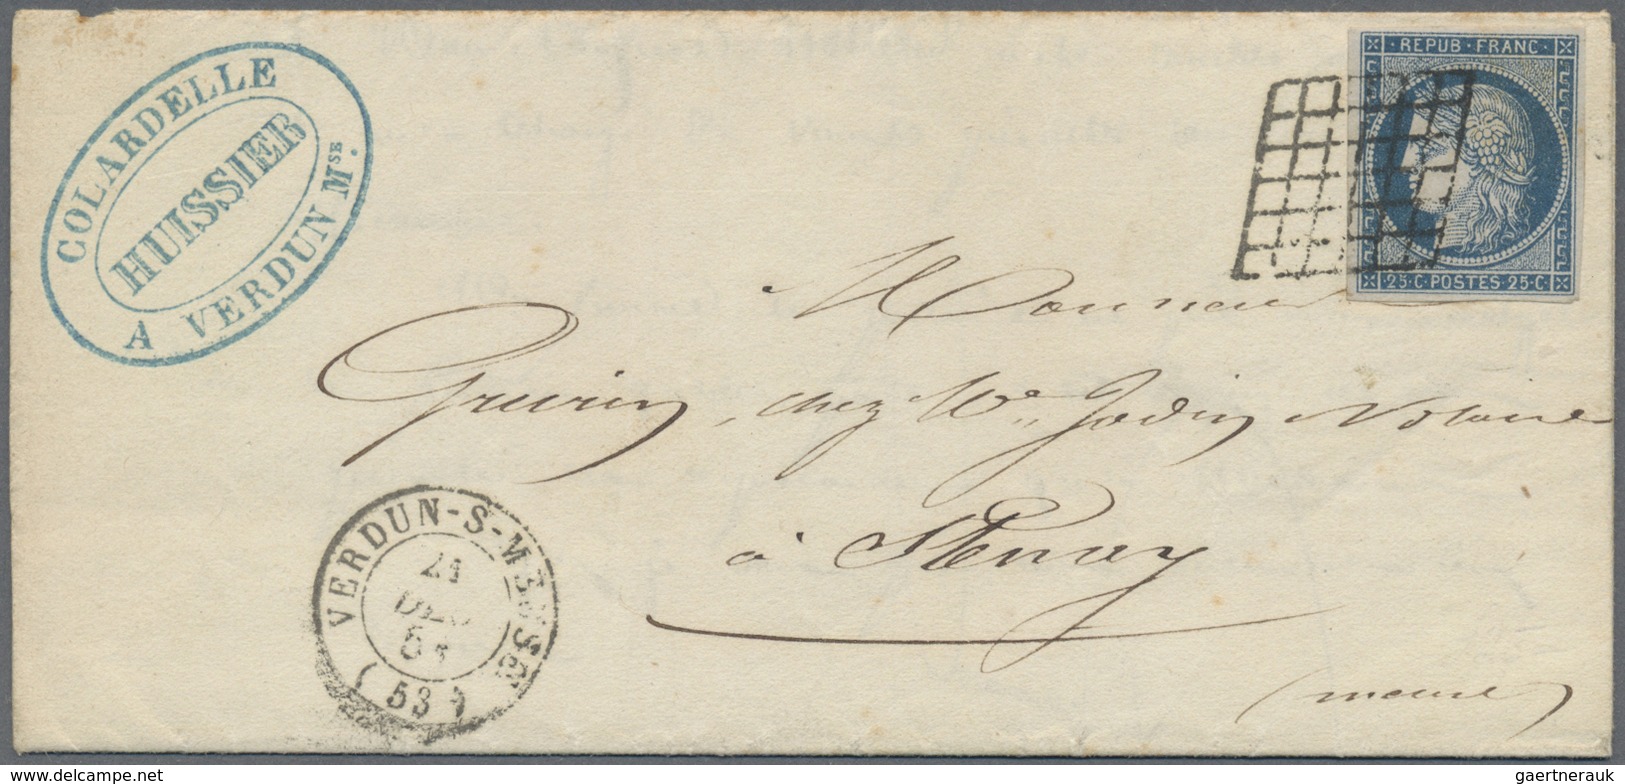 COLARDELLE
HUISSIER
A VERDUN Mse.
REPUB·FRANC·
·25·C·POSTES·25·C·
Monsieur
chez Me Jodin Notaire
à Stenay
(meuse)
VERDUN-S-MEUSE
21
DEC
51
(53)
delcampe.net
gaertnerauk